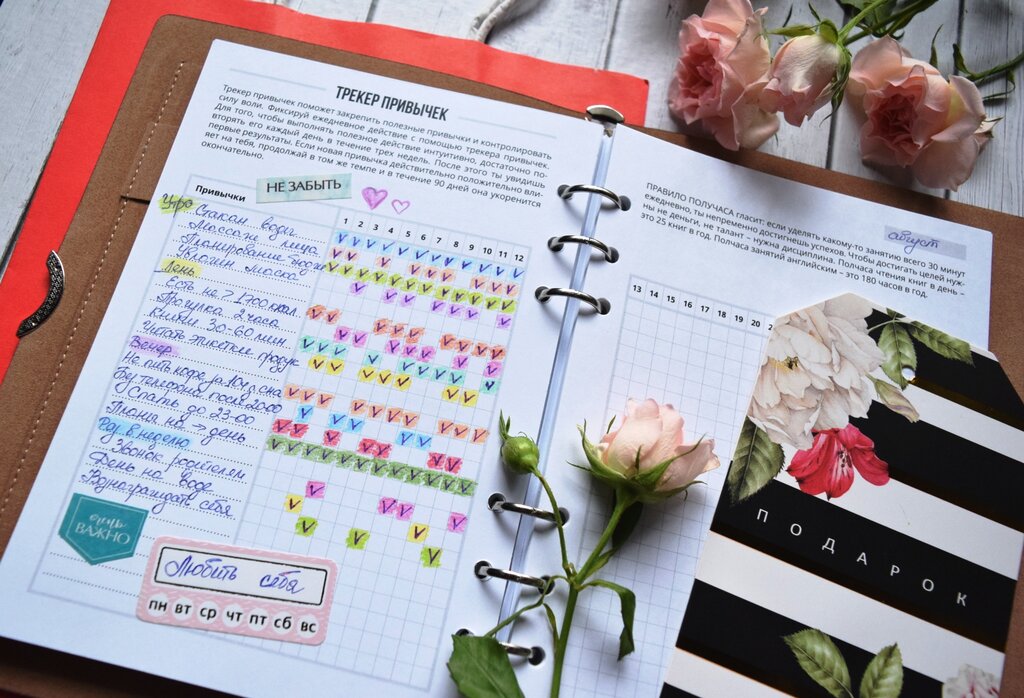 ТРЕКЕР ПРИВЫЧЕК
Трекер привычек поможет закрепить полезные привычки и контролировать
силу воли. Фиксируй ежедневное действие с помощью трекера привычек.
Для того, чтобы выполнять полезное действие интуитивно, достаточно по-
вторять его каждый день в течение трех недель. После этого ты увидишь
первые результаты. Если новая привычка действительно положительно вли-
яет на тебя, продолжай в том же темпе и в течение 90 дней она укоренится
окончательно.
Привычки
НЕ ЗАБЫТЬ
1 2 3 4 5 6 7 8 9 10 11 12
Утро Стакан воды
Массаж лица
Планирование
маска
День
Есть не > 1700 ккал.
Прогулка 2 часа
Книги 30-60 мин
Читать этикетки
Вечер
Не пить кофе за 10 ч. сна
Без телефона после 20:00
Спать до 23-00
Планы на → день
Раз в неделю
Звонок родителям
День на воде
Вознаграждать себя
очень
ВАЖНО
Любить себя
ПН ВТ СР ЧТ ПТ СБ ВС
ПРАВИЛО ПОЛУЧАСА гласит: если уделять какому-то занятию всего 30 минут
ежедневно, ты непременно достигнешь успехов. Чтобы достигать целей нуж-
ны не деньги, не талант – нужна дисциплина. Полчаса чтения книг в день –
это 25 книг в год. Полчаса занятий английским – это 180 часов в год.
август
13 14 15 16 17 18 19 20
ПОДАРОК